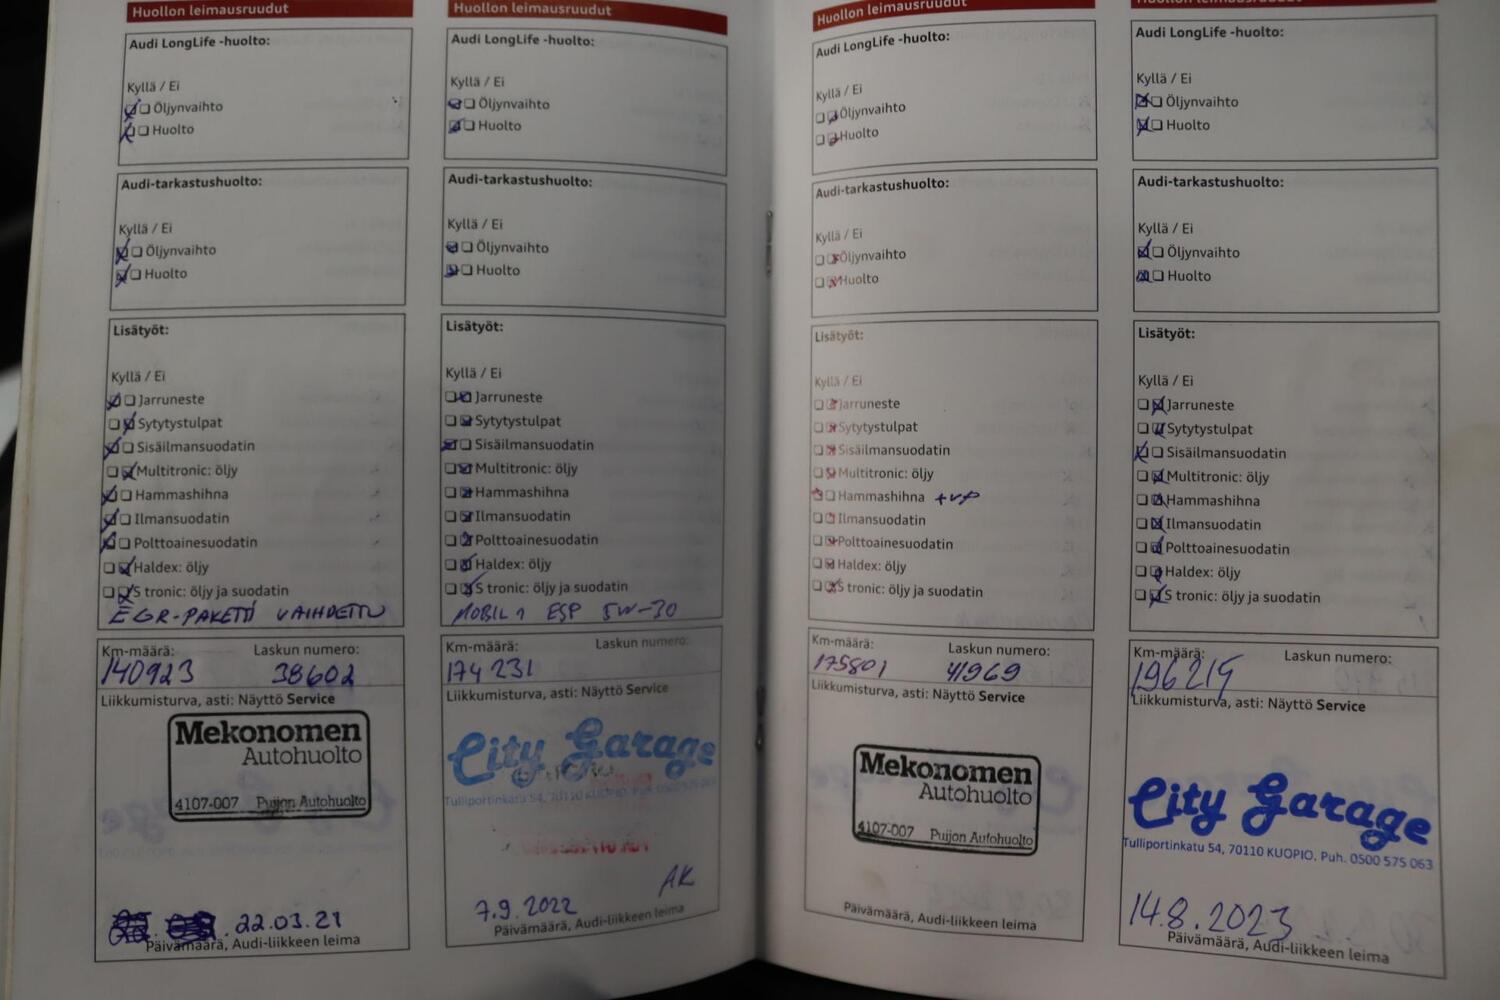 Huollon leimausruudut
Audi LongLife -huolto:
Kyllä / Ei
Öljynvaihto
Huolto
Audi-tarkastushuolto:
Kyllä / Ei
Öljynvaihto
Huolto
Lisätyöt:
Kyllä / Ei
Jarruneste
Sytytystulpat
Sisäilmansuodatin
Multitronic: öljy
Hammashihna
Ilmansuodatin
Polttoainesuodatin
Haldex: öljy
S tronic: öljy ja suodatin
EGR-PAKETTI VAIHDETTU
Km-määrä: Laskun numero:
140923 38602
Liikkumisturva, asti: Näyttö Service
Mekonomen
Autohuolto
4107-007 Puijon Autohuolto
22.03.21
Päivämäärä, Audi-liikkeen leima
Huollon leimausruudut
Audi LongLife -huolto:
Kyllä / Ei
Öljynvaihto
Huolto
Audi-tarkastushuolto:
Kyllä / Ei
Öljynvaihto
Huolto
Lisätyöt:
Kyllä / Ei
Jarruneste
Sytytystulpat
Sisäilmansuodatin
Multitronic: öljy
Hammashihna
Ilmansuodatin
Polttoainesuodatin
Haldex: öljy
S tronic: öljy ja suodatin
MOBIL 1 ESP 5W-30
Km-määrä: Laskun numero:
174231
Liikkumisturva, asti: Näyttö Service
City Garage
Tulliportinkatu 54, 70110 KUOPIO. Puh. 0500 575 063
AK
7.9.2022
Päivämäärä, Audi-liikkeen leima
Huollon leimausruudut
Audi LongLife -huolto:
Kyllä / Ei
Öljynvaihto
Huolto
Audi-tarkastushuolto:
Kyllä / Ei
Öljynvaihto
Huolto
Lisätyöt:
Kyllä / Ei
Jarruneste
Sytytystulpat
Sisäilmansuodatin
Multitronic: öljy
Hammashihna +vp
Ilmansuodatin
Polttoainesuodatin
Haldex: öljy
S tronic: öljy ja suodatin
Km-määrä: Laskun numero:
175801 41969
Liikkumisturva, asti: Näyttö Service
Mekonomen
Autohuolto
4107-007 Puijon Autohuolto
Päivämäärä, Audi-liikkeen leima
Huollon leimausruudut
Audi LongLife -huolto:
Kyllä / Ei
Öljynvaihto
Huolto
Audi-tarkastushuolto:
Kyllä / Ei
Öljynvaihto
Huolto
Lisätyöt:
Kyllä / Ei
Jarruneste
Sytytystulpat
Sisäilmansuodatin
Multitronic: öljy
Hammashihna
Ilmansuodatin
Polttoainesuodatin
Haldex: öljy
S tronic: öljy ja suodatin
Km-määrä: Laskun numero:
196219
Liikkumisturva, asti: Näyttö Service
City Garage
Tulliportinkatu 54, 70110 KUOPIO. Puh. 0500 575 063
14.8.2023
Päivämäärä, Audi-liikkeen leima